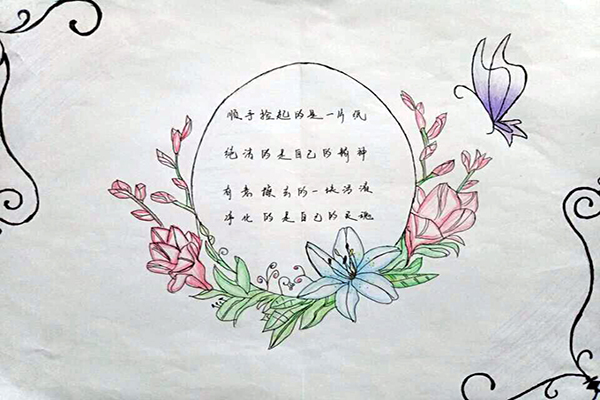 顺手捡起的是一片纸
纯洁的是自己的精神
有意擦去的一块污渍
净化的是自己的灵魂